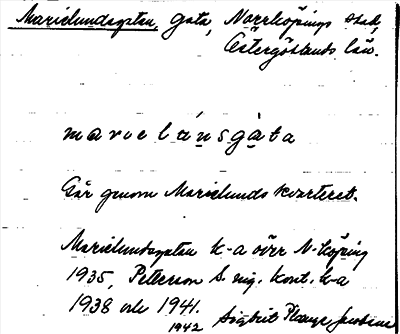 Marielundsgatan, gata, Norrköpings stad,
Östergötlands län.
marielùnsgàta
Går genom Marielunds kvarteret.
Marielundsgatan k-a över N-köping
1935, Petterson S. reg. kont. k-a
1938 och 1941.
1942 Sigbrit Plænge Jacobson